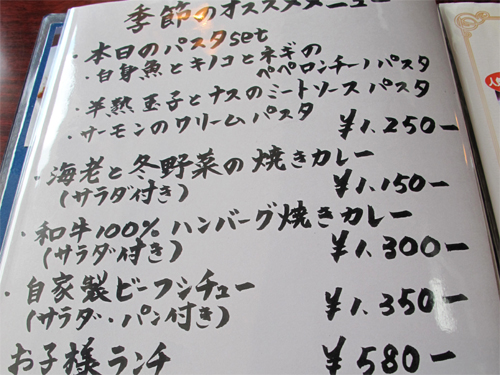 季節のオススメメニュー
・本日のパスタset
・白身魚とキノコとネギの
ペペロンチーノパスタ
・半熟玉子とナスのミートソースパスタ
・サーモンのクリームパスタ ¥1,250ー
・海老と冬野菜の焼きカレー
(サラダ付き) ¥1,150ー
・和牛100%ハンバーグ焼きカレー
(サラダ付き) ¥1,300ー
・自家製ビーフシチュー
(サラダ・パン付き) ¥1,350ー
お子様ランチ ¥580ー